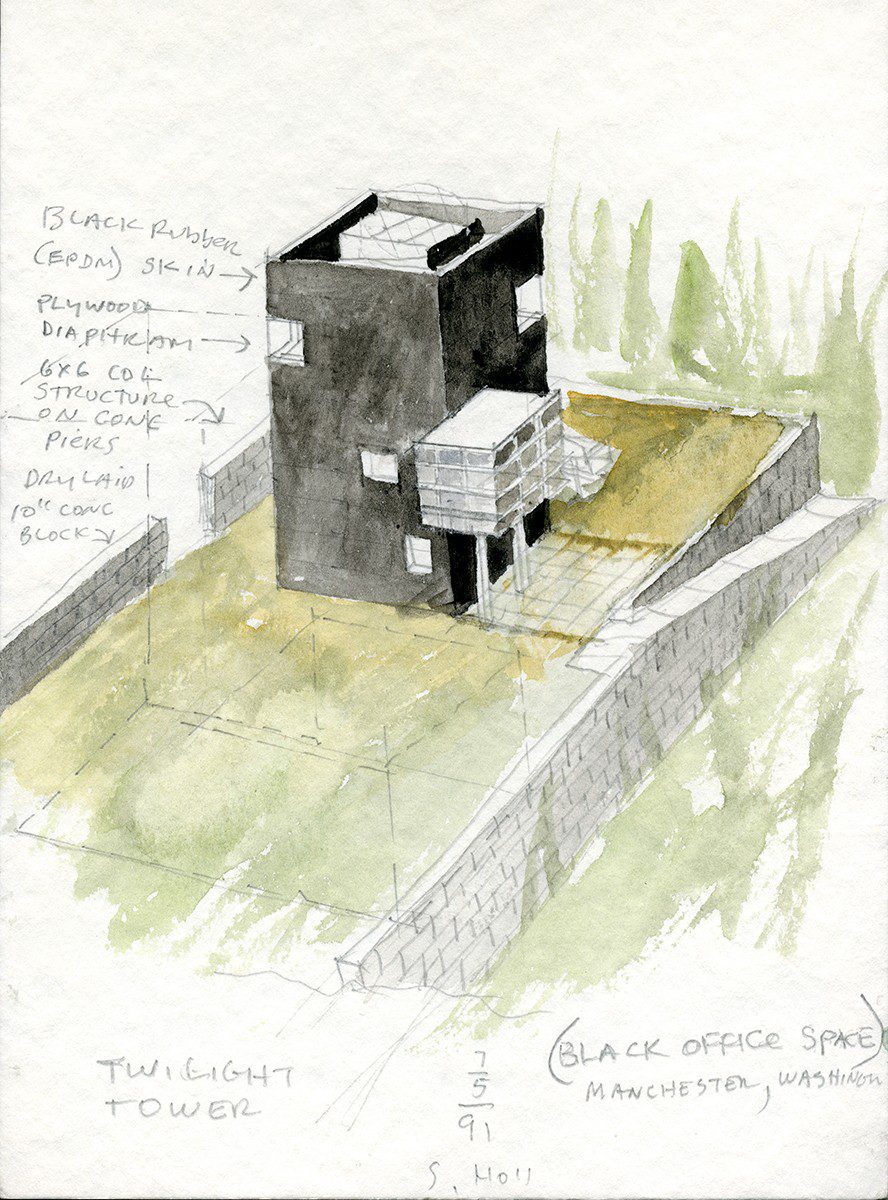 BLACK RUBBER
(EPDM) SKIN
PLYWOOD
DIAPHRAM
6X6 COL
STRUCTURE
ON CONC
PIERS
DRY LAID
10" CONC
BLOCK
TWILIGHT
TOWER
7
5
91
(BLACK OFFICE SPACE)
MANCHESTER, WASHINGTON
S. Holl